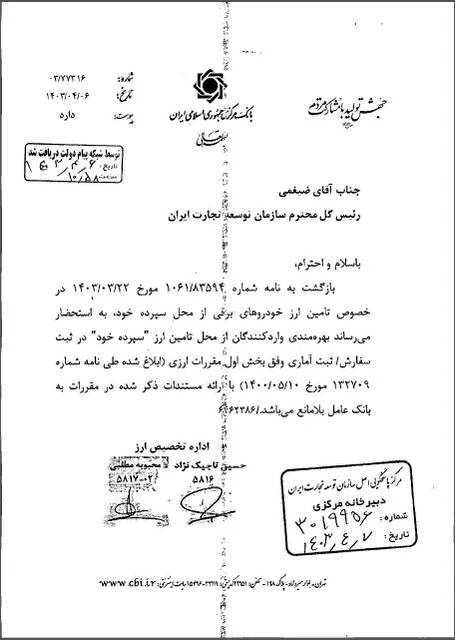 جهش تولید با مشارکت مردم
بانک مرکزی جمهوری اسلامی ایران
بسمه تعالی
شماره: ۰۳/۷۷۳۱۶
تاریخ: ۱۴۰۳/۰۴/۰۶
پیوست: دارد
توسط شبکه پیام دولت دریافت شد
تاریخ:
ساعت:
جناب آقای ضیغمی
رئیس کل محترم سازمان توسعه تجارت ایران
باسلام و احترام،
بازگشت به نامه شماره ۱۰۶۱/۸۳۵۹۴ مورخ ۱۴۰۳/۰۳/۲۲ در
خصوص تامین ارز خودروهای برقی از محل سپرده خود، به استحضار
می‌رساند بهره‌مندی واردکنندگان از محل تامین ارز "سپرده خود" در ثبت
سفارش/ ثبت آماری وفق بخش اول مقررات ارزی (ابلاغ شده طی نامه شماره
۱۳۲۷۰۹ مورخ ۱۴۰۰/۰۵/۱۰) با ارائه مستندات ذکر شده در مقررات به
بانک عامل بلامانع می‌باشد./۶۶۶۲۳۸۶
اداره تخصیص ارز
حسین تاجیک نژاد محبوبه مطلبی
۵۸۱۶ ۵۸۱۷-۰۲
مرکز پاسخگویی اصل سازمان توسعه تجارت ایران
دبیرخانه مرکزی
شماره: ۳۰۱۹۹۵۶
تاریخ: ۱۴۰۳/۴/۷
تهران- بلوار میرداماد- پلاک ۱۹۸
www.cbi.ir